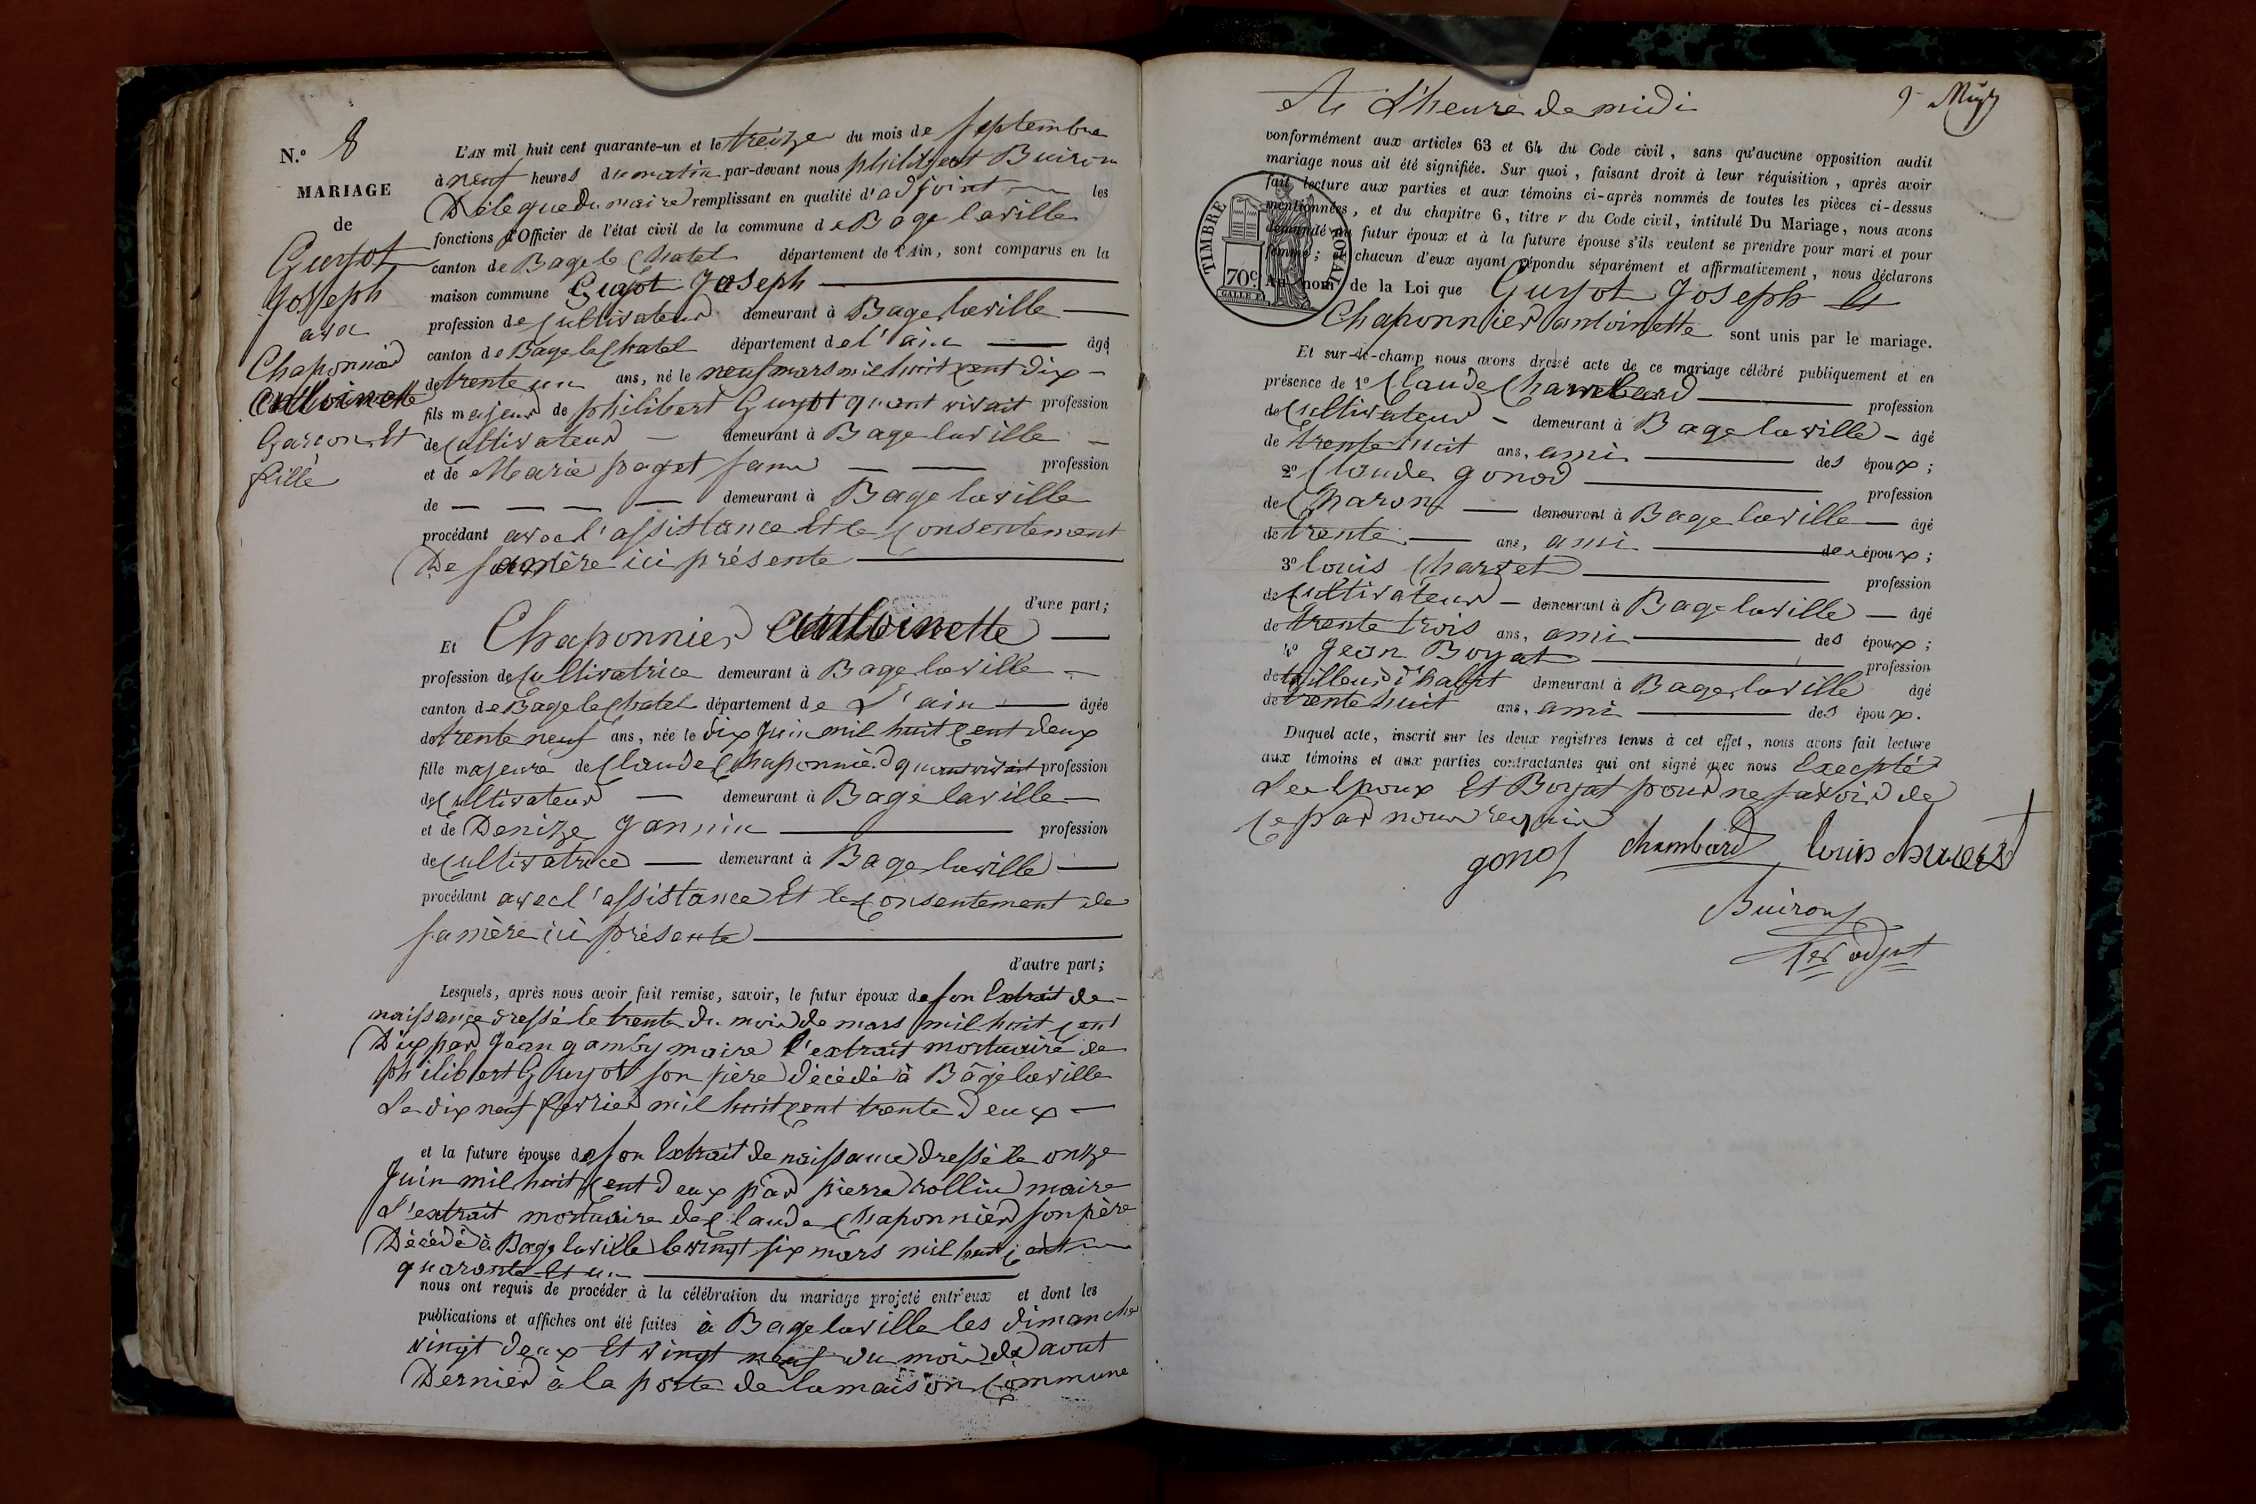 N.o 8
MARIAGE
de
Guyot
Joseph
avec
Chaponnier
antoinette
Garçon Et
fille
L'AN mil huit cent quarante-un et le treitze du mois de septembre
à neuf heures du matin par-devant nous philibert Buiron
Délégué du maire remplissant en qualité d'adjoint les
fonctions d'Officier de l'état civil de la commune de Bage laville
canton de Bage le Chatel département de l'Ain, sont comparus en la
maison commune Guyot Joseph
profession de Cultivateur demeurant à Bage laville
canton de Bage le Chatel département de l'ain âgé
de trente un ans, né le neuf mars mil huit cent dix
fils majeur de philibert Guyot quant vivait profession
de Cultivateur demeurant à Bage laville
et de Marie paget sa profession
de demeurant à Bage laville
procédant avec l'assistance Et le Consentement
De sa mère ici présente
d'une part;
Et Chaponnier antoinette
profession de Cultivatrice demeurant à Bage laville
canton de Bage le Chatel département de L'ain âgée
de trente neuf ans, née le dix Juin mil huit Cent deux
fille majeure de Claude Chaponnier quant vivait profession
de Cultivateur demeurant à Bage laville
et de Denitze Jannin profession
de Cultivatrice demeurant à Bage laville
procédant avec l'assistance Et le Consentement de
sa mère ici présente
d'autre part;
Lesquels, après nous avoir fait remise, savoir, le futur époux de son Extrait de
naissance dressé le trente du mois de mars mil huit cent
Dix par Jean gamby maire l'extrait mortuaire de
philibert Guyot son père décédé à Bâgé laville
Le dix neuf fevrier mil huit cent trente deux
et la future épouse de son Extrait de naissance dressé le ontze
Juin mil huit Cent deux par pierre rollin maire
L'extrait mortuaire de Claude Chaponnier son père
Décédé à Bage laville le vingt six mars mil huit cent
quarante Et un
nous ont requis de procéder à la célébration du mariage projeté entr'eux et dont les
publications et affiches ont été faites à Bage laville les dimanche
vingt deux Et vingt neuf du mois de aout
Dernier à la porte de la maison Commune
A L'heure de midi
9
conformément aux articles 63 et 64 du Code civil, sans qu'aucune opposition audit
mariage nous ait été signifiée. Sur quoi, faisant droit à leur réquisition, après avoir
fait lecture aux parties et aux témoins ci-après nommés de toutes les pièces ci-dessus
mentionnées, et du chapitre 6, titre v du Code civil, intitulé Du Mariage, nous avons
demandé au futur époux et à la future épouse s'ils veulent se prendre pour mari et pour
femme; et chacun d'eux ayant répondu séparément et affirmativement, nous déclarons
Au nom de la Loi que Guyot Joseph Et
Chaponnier antoinette sont unis par le mariage.
TIMBRE ROYAL
70c
Et sur-le-champ nous avons dressé acte de ce mariage célébré publiquement et en
présence de 1o Claude Chambard profession
de Cultivateur demeurant à Bage laville âgé
de trente huit ans, ami des époux;
2o Claude gonod profession
de Charon demeurant à Bage laville âgé
de trente ans, ami des époux;
3o louis Charvet profession
de Cultivateur demeurant à Bage laville âgé
de trente trois ans, ami des époux;
4o Jean Boyat profession
de tailleur d'habit demeurant à Bage laville âgé
de trente huit ans, ami des époux.
Duquel acte, inscrit sur les deux registres tenus à cet effet, nous avons fait lecture
aux témoins et aux parties contractantes qui ont signé avec nous Excepté
Les Epoux Et Boyat pour ne savoir de
Ce par nous requis
gonod chambard louis charvet
Buiron
1er adjut